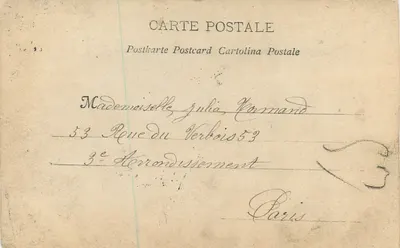 CARTE POSTALE
Postkarte Postcard Cartolina Postale
Mademoiselle Julia Normand
53 Rue du Verbois 53
3e Arrondissement
Paris